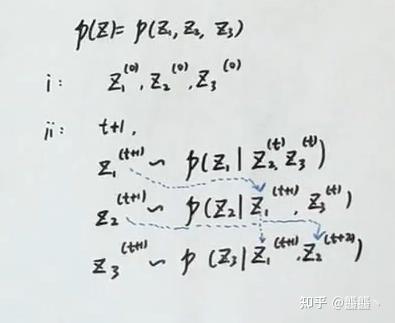 p(Z)= p(Z₁, Z₂, Z₃)
i: Z₁⁽⁰⁾, Z₂⁽⁰⁾, Z₃⁽⁰⁾
ii: t+1,
Z₁⁽ᵗ⁺¹⁾ ~ p(Z₁ | Z₂⁽ᵗ⁾, Z₃⁽ᵗ⁾)
Z₂⁽ᵗ⁺¹⁾ ~ p(Z₂ | Z₁⁽ᵗ⁺¹⁾, Z₃⁽ᵗ⁾)
Z₃⁽ᵗ⁺¹⁾ ~ p(Z₃ | Z₁⁽ᵗ⁺¹⁾, Z₂⁽ᵗ⁺²⁾)
知乎 @龘龘